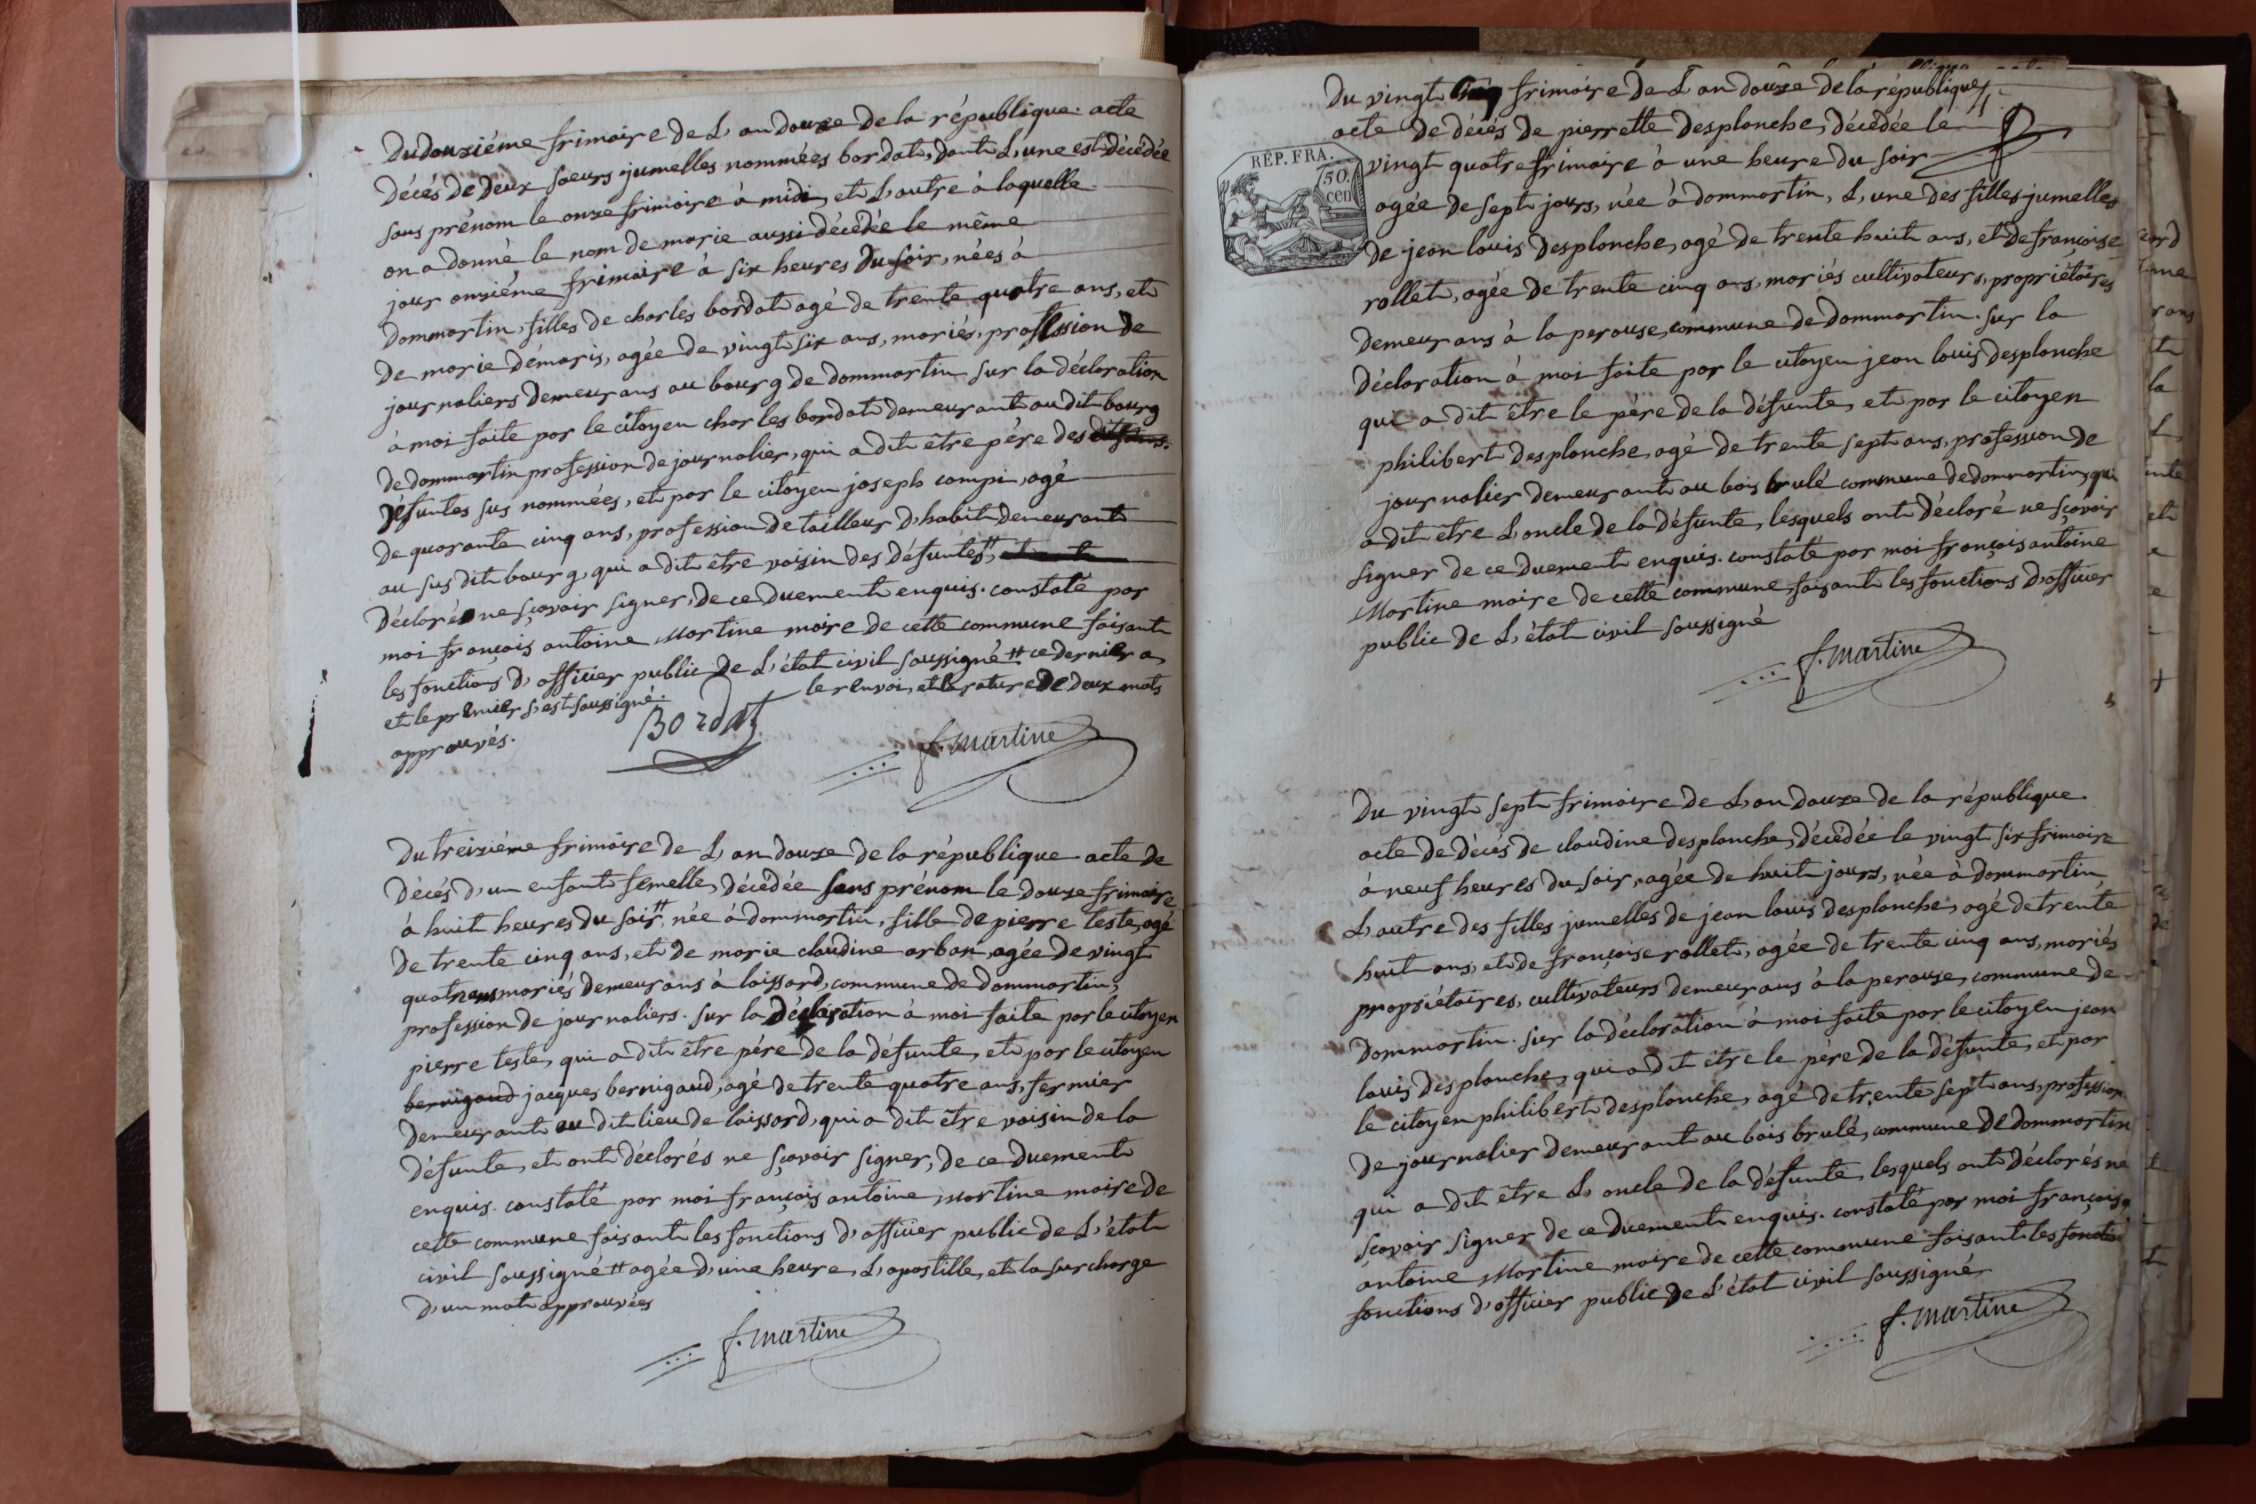 Du douziéme frimaire de L'an douze de la république. acte
décés de deux soeurs jumelles nommées bordat, dont L'une est décédée
sans prénom le onze frimaire à midi, et L'autre à laquelle
on a donné le nom de marie aussi décédée le même
jour onziéme frimaire à six heures du soir, nées à
dommartin, filles de charles bordat agé de trente quatre ans, et
de marie démaris, agée de vingt six ans, mariés, profession de
journaliers demeurans au bourg de dommartin sur la déclaration
à moi faite par le citoyen charles bordat demeurant au dit bourg
de dommartin profession de journalier, qui a dit être pére des
défuntes sus nommées, et par le citoyen joseph compi, agé
de quarante cinq ans, profession de tailleur d'habit demeurant
au sus dit bourg, qui a dit être voisin des défuntes #,
déclaré ne sçavoir signer, de ce duement enquis. constaté par
moi françois antoine Martine maire de cette commune faisant
les fonctions d'officier public de L'état civil soussigné # ce dernier a
et le premier s'est soussigné. le renvoi, et la rature de deux mots
approuvés.
Bordat
f. martine
Du treiziéme frimaire de L'an douze de la république acte de
décés d'un enfant femelle, décédée sans prénom le douze frimaire
à huit heures du soir #, née à dommartin, fille de pierre teste, agé
de trente cinq ans, et de marie claudine arban, agée de vingt
quatre ans mariés demeurans à laissard, commune de dommartin,
profession de journaliers. sur la déclaration à moi faite par le citoyen
pierre teste, qui a dit être pére de la défunte, et par le citoyen
bernigaud jacques bernigaud, agé de trente quatre ans, fermier
demeurant au dit lieu de laissard, qui a dit être voisin de la
défunte, et ont déclarés ne sçavoir signer, de ce duement
enquis. constaté par moi françois antoine Martine maire de
cette commune faisant les fonctions d'officier public de L'état
civil soussigné # agée d'une heure, L'apostille, et la surcharge
d'un mot approuvées
f. martine
Du vingt frimaire de L'an douze de la république,
acte de décés de pierrette desplanche, décédée le
RÉP. FRA.
50.
cen
vingt quatre frimaire à une heure du soir
agée de sept jours, née à dommartin, L'une des filles jumelles
de jean louis desplanche, agé de trente huit ans, et de françoise
rollet, agée de trente cinq ans, mariés cultivateurs, propriétaires
demeurans à la perouse, commune de dommartin. sur la
déclaration à moi faite par le citoyen jean louis desplanche
qui a dit être le pére de la défunte, et par le citoyen
philibert desplanche, agé de trente sept ans, profession de
journalier demeurant au bois brulé commune de dommartin, qui
a dit être L'oncle de la défunte, lesquels ont déclaré ne sçavoir
signer de ce duement enquis. constaté par moi françois antoine
Martine maire de cette commune faisant les fonctions d'officier
public de L'état civil soussigné
f. martine
Du vingt sept frimaire de L'an douze de la république
acte de décés de claudine desplanche, décédée le vingt six frimaire
à neuf heures du soir, agée de huit jours, née à dommartin,
L'autre des filles jumelles de jean louis desplanche, agé de trente
huit ans, et de françoise rollet, agée de trente cinq ans, mariés
propriétaires, cultivateurs demeurans à la perouse, commune de
dommartin. sur la déclaration à moi faite par le citoyen jean
louis desplanche, qui a dit être le pére de la défunte, et par
le citoyen philibert desplanche, agé de trente sept ans, profession
de journalier demeurant au bois brulé, commune de dommartin
qui a dit être L'oncle de la défunte, lesquels ont déclarés ne
sçavoir signer de ce duement enquis. constaté par moi françois
antoine Martine maire de cette commune faisant les
fonctions d'officier public de L'état civil soussigné
f. martine